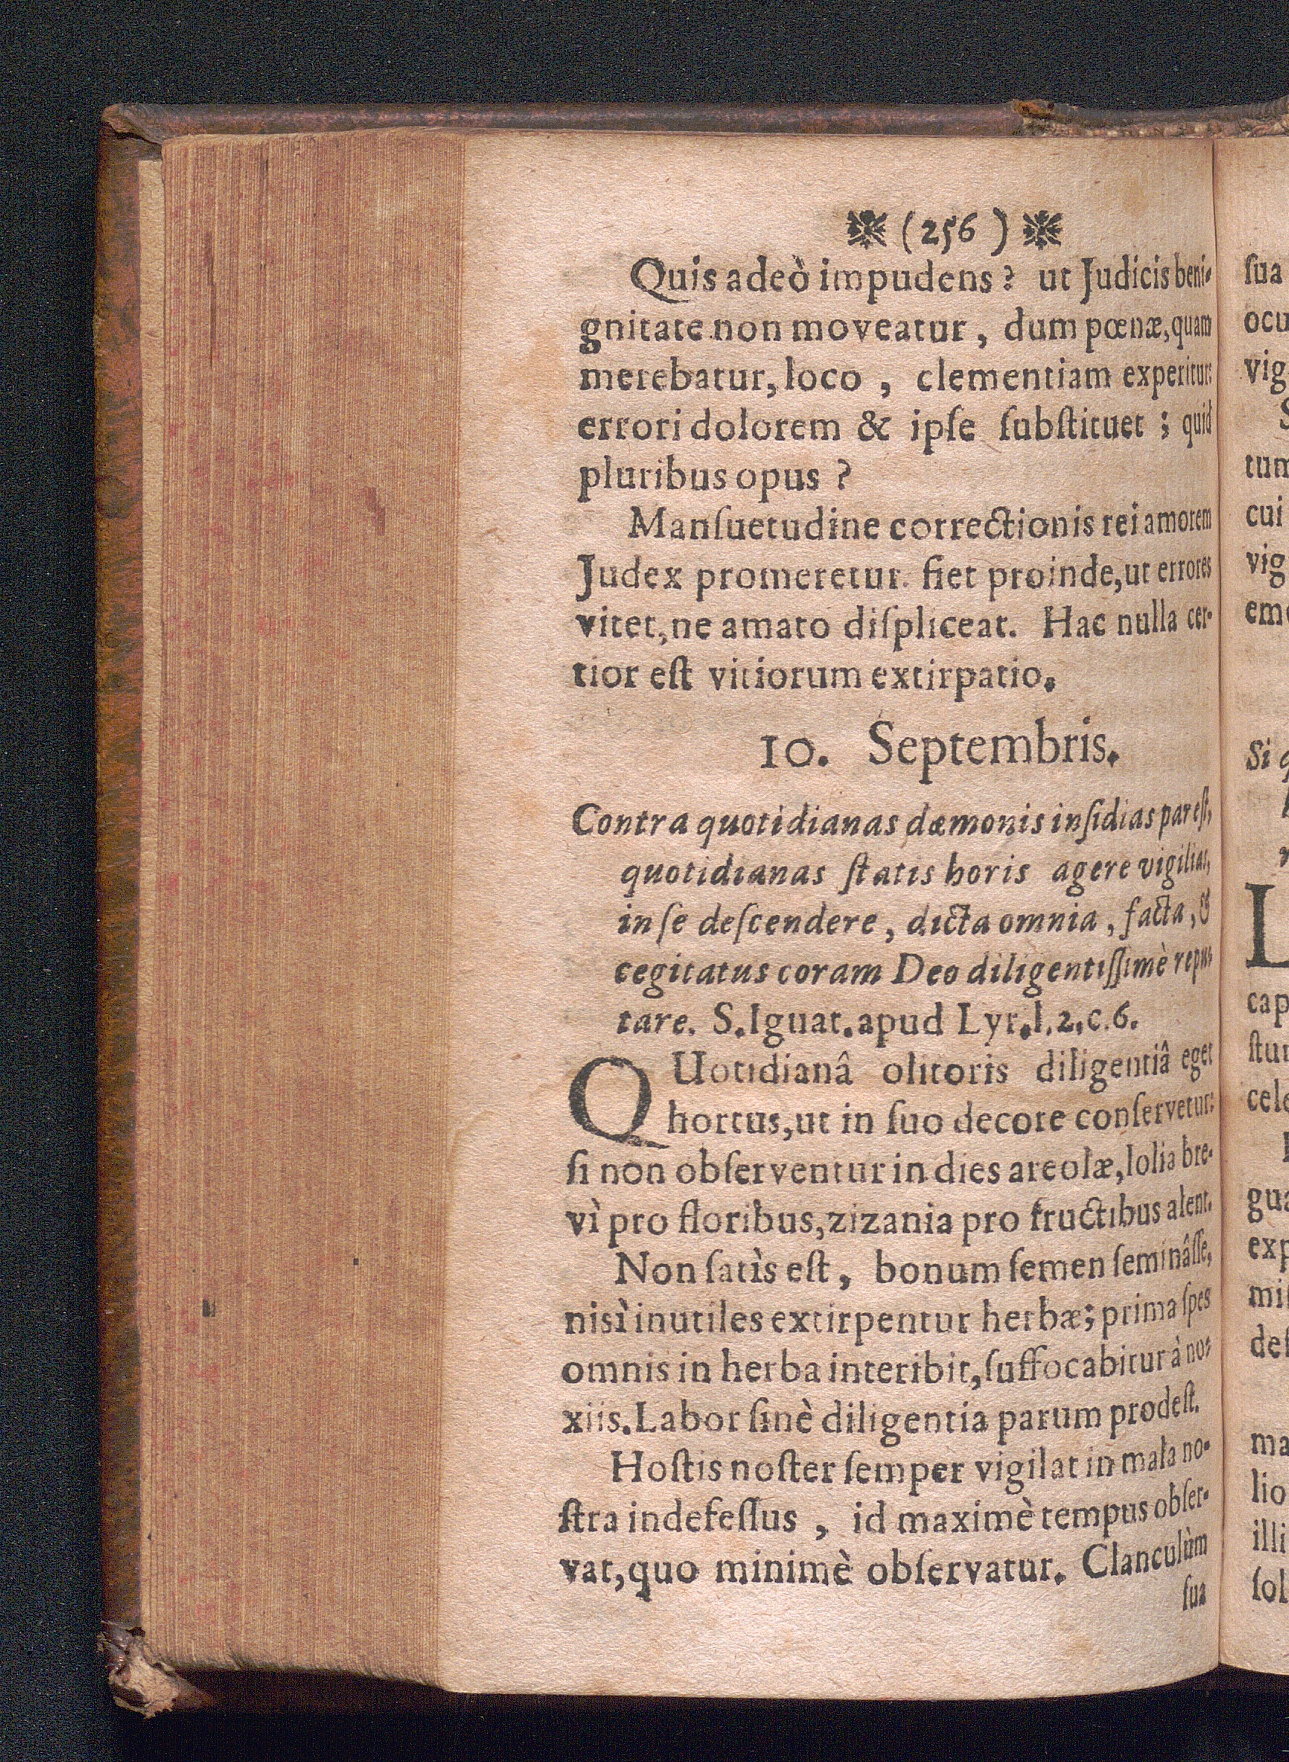 (256)
Quis adeò impudens? ut Judicis beni-
gnitate non moveatur, dum pœnæ, quam
merebatur, loco, clementiam experitur:
errori dolorem & ipſe ſubſtituet; quid
pluribus opus?
Manſuetudine correctionis rei amorem
Judex promeretur. fiet proinde, ut errores
vitet, ne amato diſpliceat. Hac nulla cer-
tior eſt vitiorum extirpatio.
10. Septembris.
Contra quotidianas dæmonis inſidias par eſt,
quotidianas ſtatis horis agere vigilias,
in ſe deſcendere, dicta omnia, facta, &
cegitatus coram Deo diligentiſſimè repu-
tare. S. Iguat. apud Lyr. l. 2, c. 6.
QUotidianâ olitoris diligentiâ eget
hortus, ut in ſuo decore conſervetur:
ſi non obſerventur in dies areolæ, lolia bre-
vì pro floribus, zizania pro fructibus alent.
Non ſatìs eſt, bonum ſemen ſeminâſſe,
nisì inutiles extirpentur herbæ; prima ſpes
omnis in herba interibit, ſuffocabitur à no-
xiis. Labor ſinè diligentia parum prodeſt.
Hoſtis noſter ſemper vigilat in mala no-
ſtra indefeſſus, id maximè tempus obſer-
vat, quo minimè obſervatur. Clanculùm
ſua
ſua
ocu
vig
S
tum
cui
vig
Si
L
cap
cele
gua
exp
ma
lio
illi
ſol